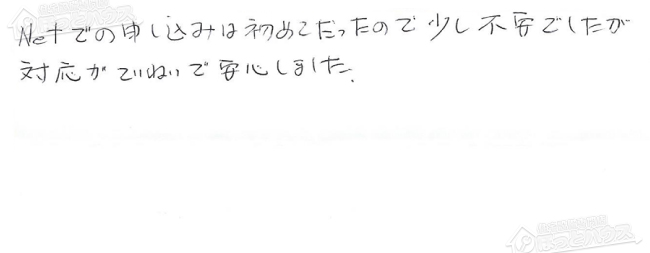 Netでの申し込みは初めてだったので少し不安でしたが
対応がていねいで安心しました.